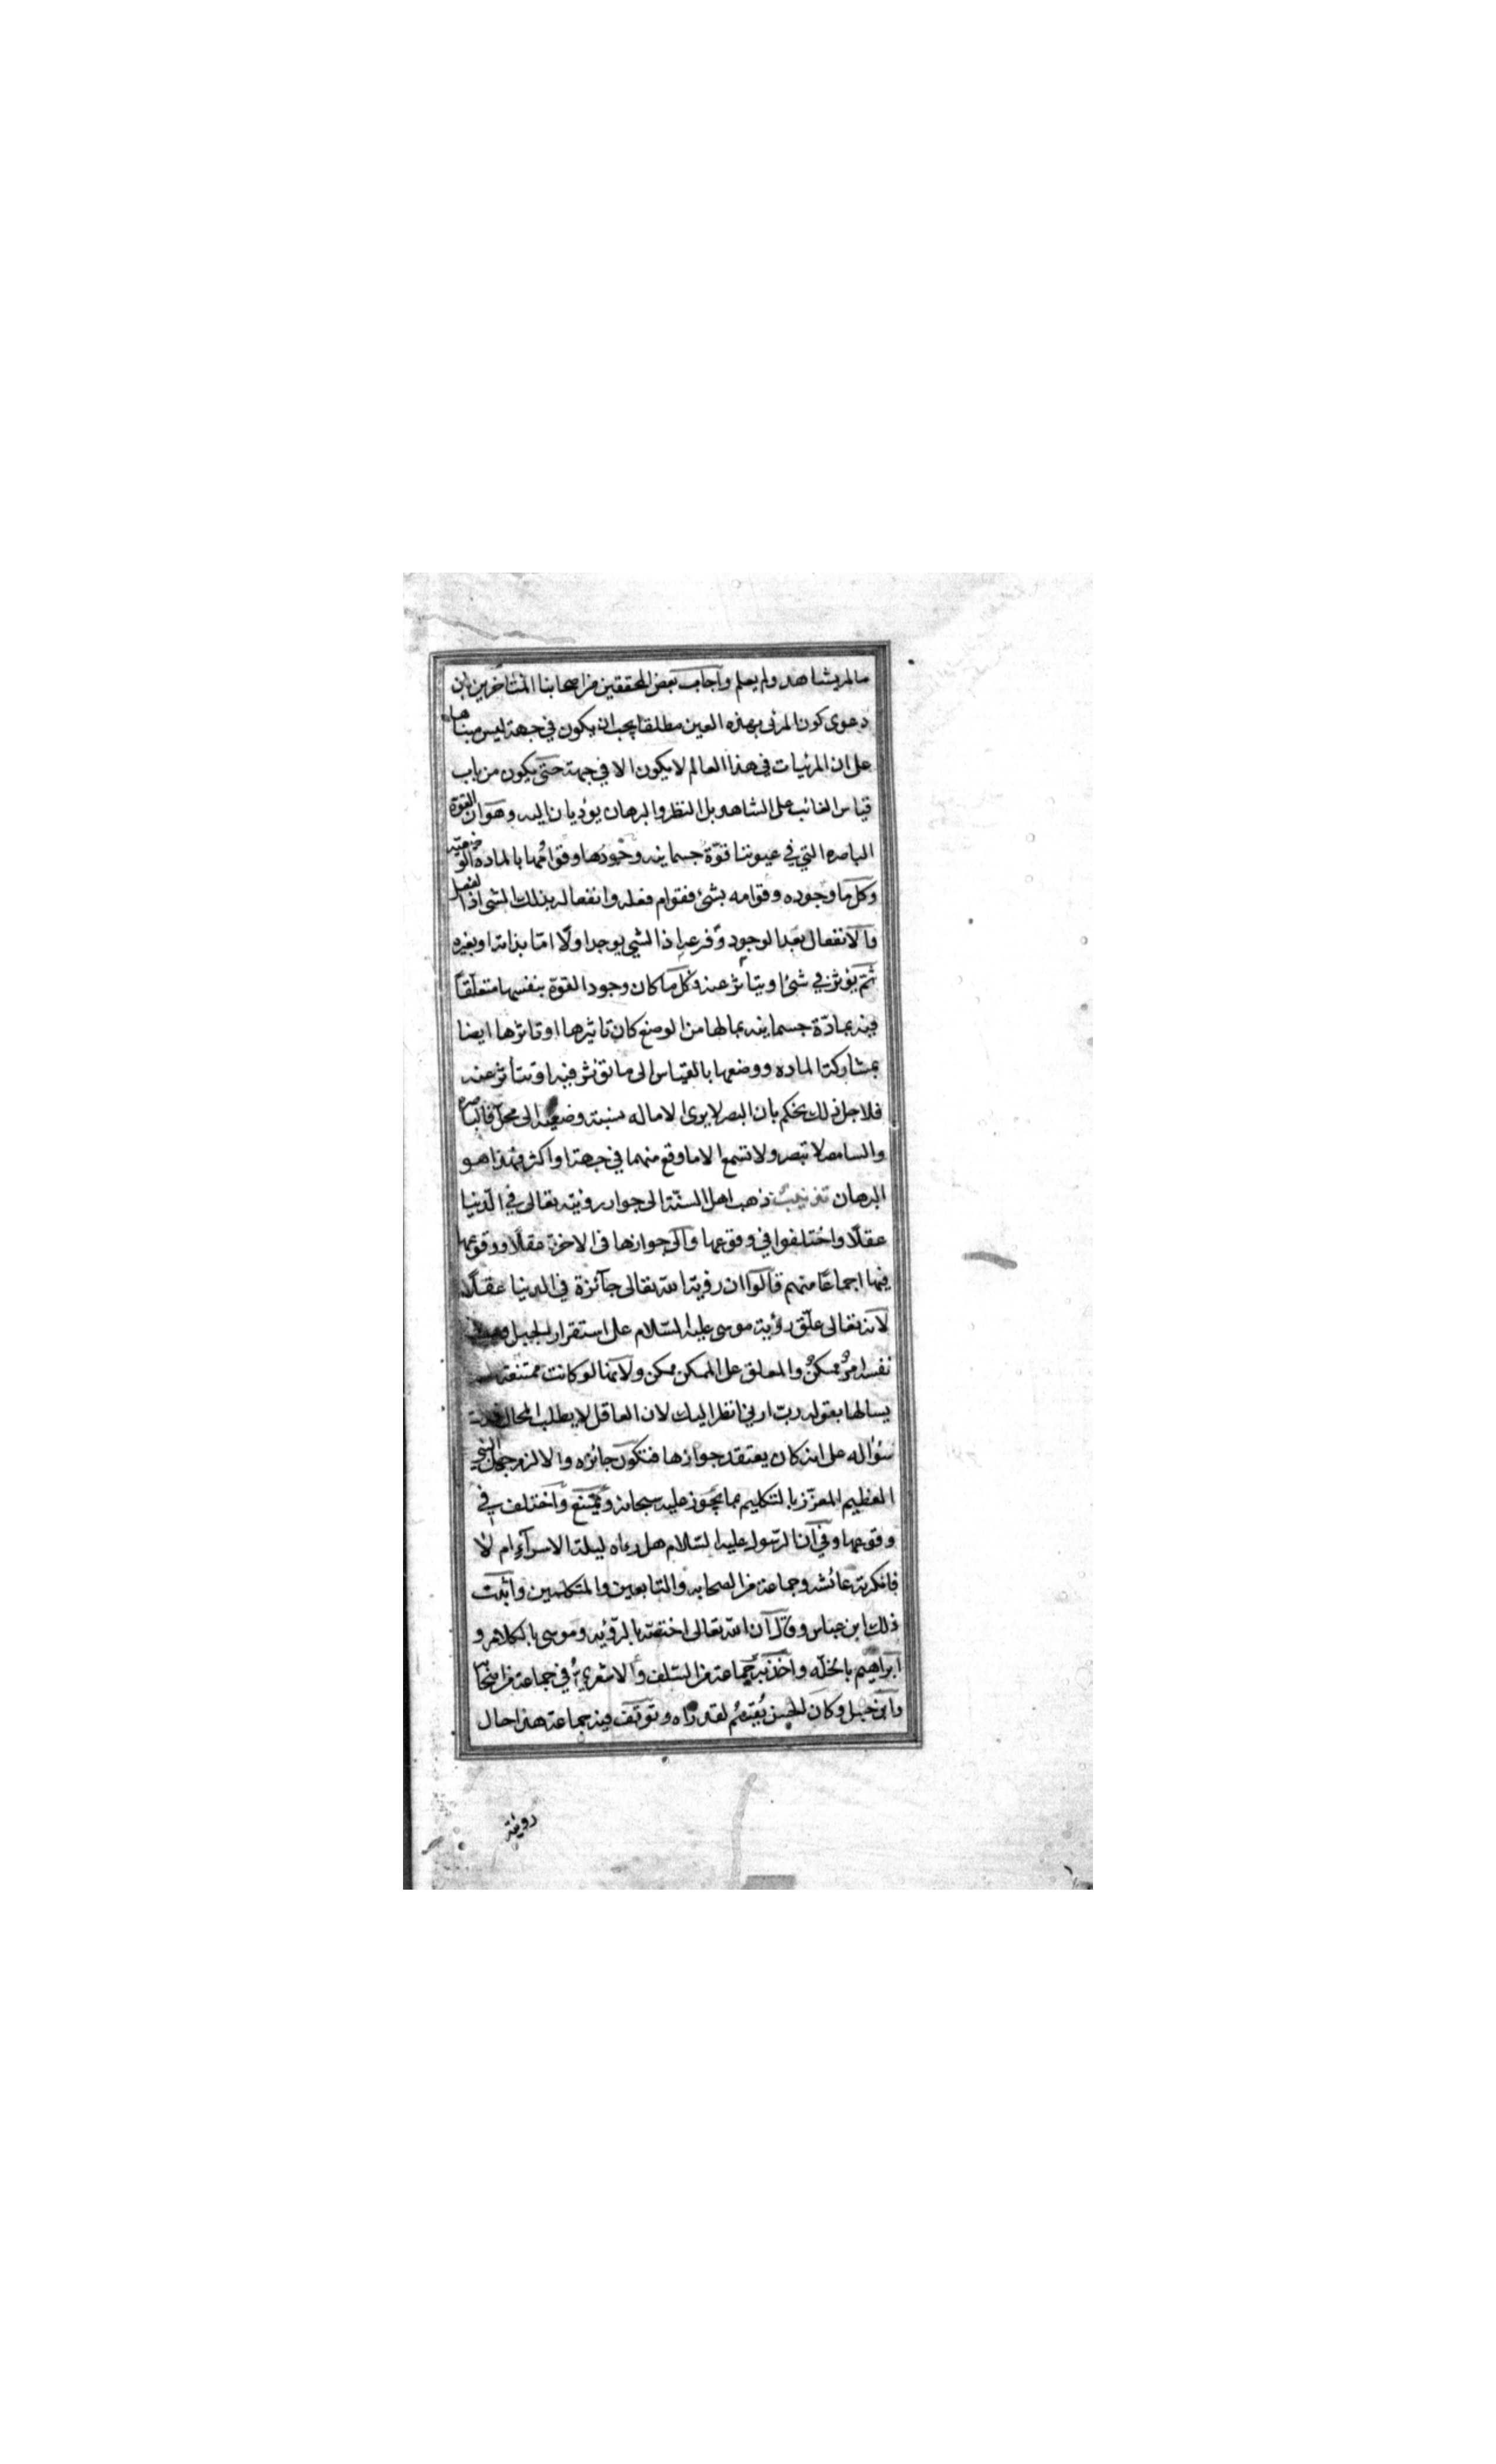 مالم يشاهد ولم يعلم واجاب بعض المحققين من اصحابنا المتاخرين بان
دعوى كون المرئي بهذه العين مطلقا يجب ان يكون في جهة ليس مبناها
على ان المرئيات في هذا العالم لا يكون الا في جهة حتى يكون من باب
قياس الغائب على الشاهد بل النظر والبرهان يؤديان اليه وهو ان القوة
الباصره التي في عيوننا قوّة جسمانيه وجودها وقوامُها بالمادة الوضعيّه
وكل ما وجوده وقوامه بشئ فقوام فعله وانفعاله بذلك الشي اذ الفعل
والانفعال بعد الوجود وفرعه اذ الشي يوجد اولّا امّا بذاته او بغيره
ثمّ يؤثر في شئ او يتاثر عنه وكل ما كان وجود القوة بنفسها متعلّقاً
فيه بمادّة جسمانيه بما لها من الوضع كان تاثيرها او تاثرها ايضا
بمشاركة الماده ووضعها بالقياس الى ما تؤثر فيه او تتأثر عنه
فلاجل ذلك يحكم بان البصر لا يرى الا ماله نسبة وضعيه الى محلّ فالباصره
والسامعه لا تبصر ولا تسمع الا ما وقع منهما في جهة او اكثر فهذا هو
البرهان ذهب اهل السنّة الى جواز رؤيته تعالى في الدّنيا
عقلًا واختلفوا في وقوعها والى جوازها في الاخرة عقلًا ووقوعها
فيها اجماعًا منهم قالوا ان رؤية الله تعالى جآئزة في الدنيا عقلًا
لانه تعالى علّق رؤية موسى عليه السّلام على استقرار الجبل وهو في
نفسه امرٌ ممكنٌ والمعلق على الممكن ممكن ولانّها لو كانت ممتنعة لم
يسالها بقوله ربّ ارني انظر اليك لان العاقل لا يطلب المحال فدلّ
سُؤاله على انه كان يعتقد جوازها فتكون جائزه والا لزم جهل النبي
العظيم المعزّز بالتكليم بما يجوز عليه سبحانه ويمتنع واختلف في
وقوعها وفي انّ الرّسول عليه السّلام هل رءاه ليلة الاسرآء ام لا
فانكرته عائشه وجماعة من الصحابه والتابعين والمتكلمين واثبت
ذلك ابن عباس وقال ان الله تعالى اختصّه بالرّؤيه وموسى بالكلام و
ابراهيم بالخلّه واخذ به جماعة من السّلف والاشعري في جماعة من اصحابه
وابن حنبل وكان الحسن يُقسم لقد رآه وتوقف فيه جماعة هذا حال
رويته